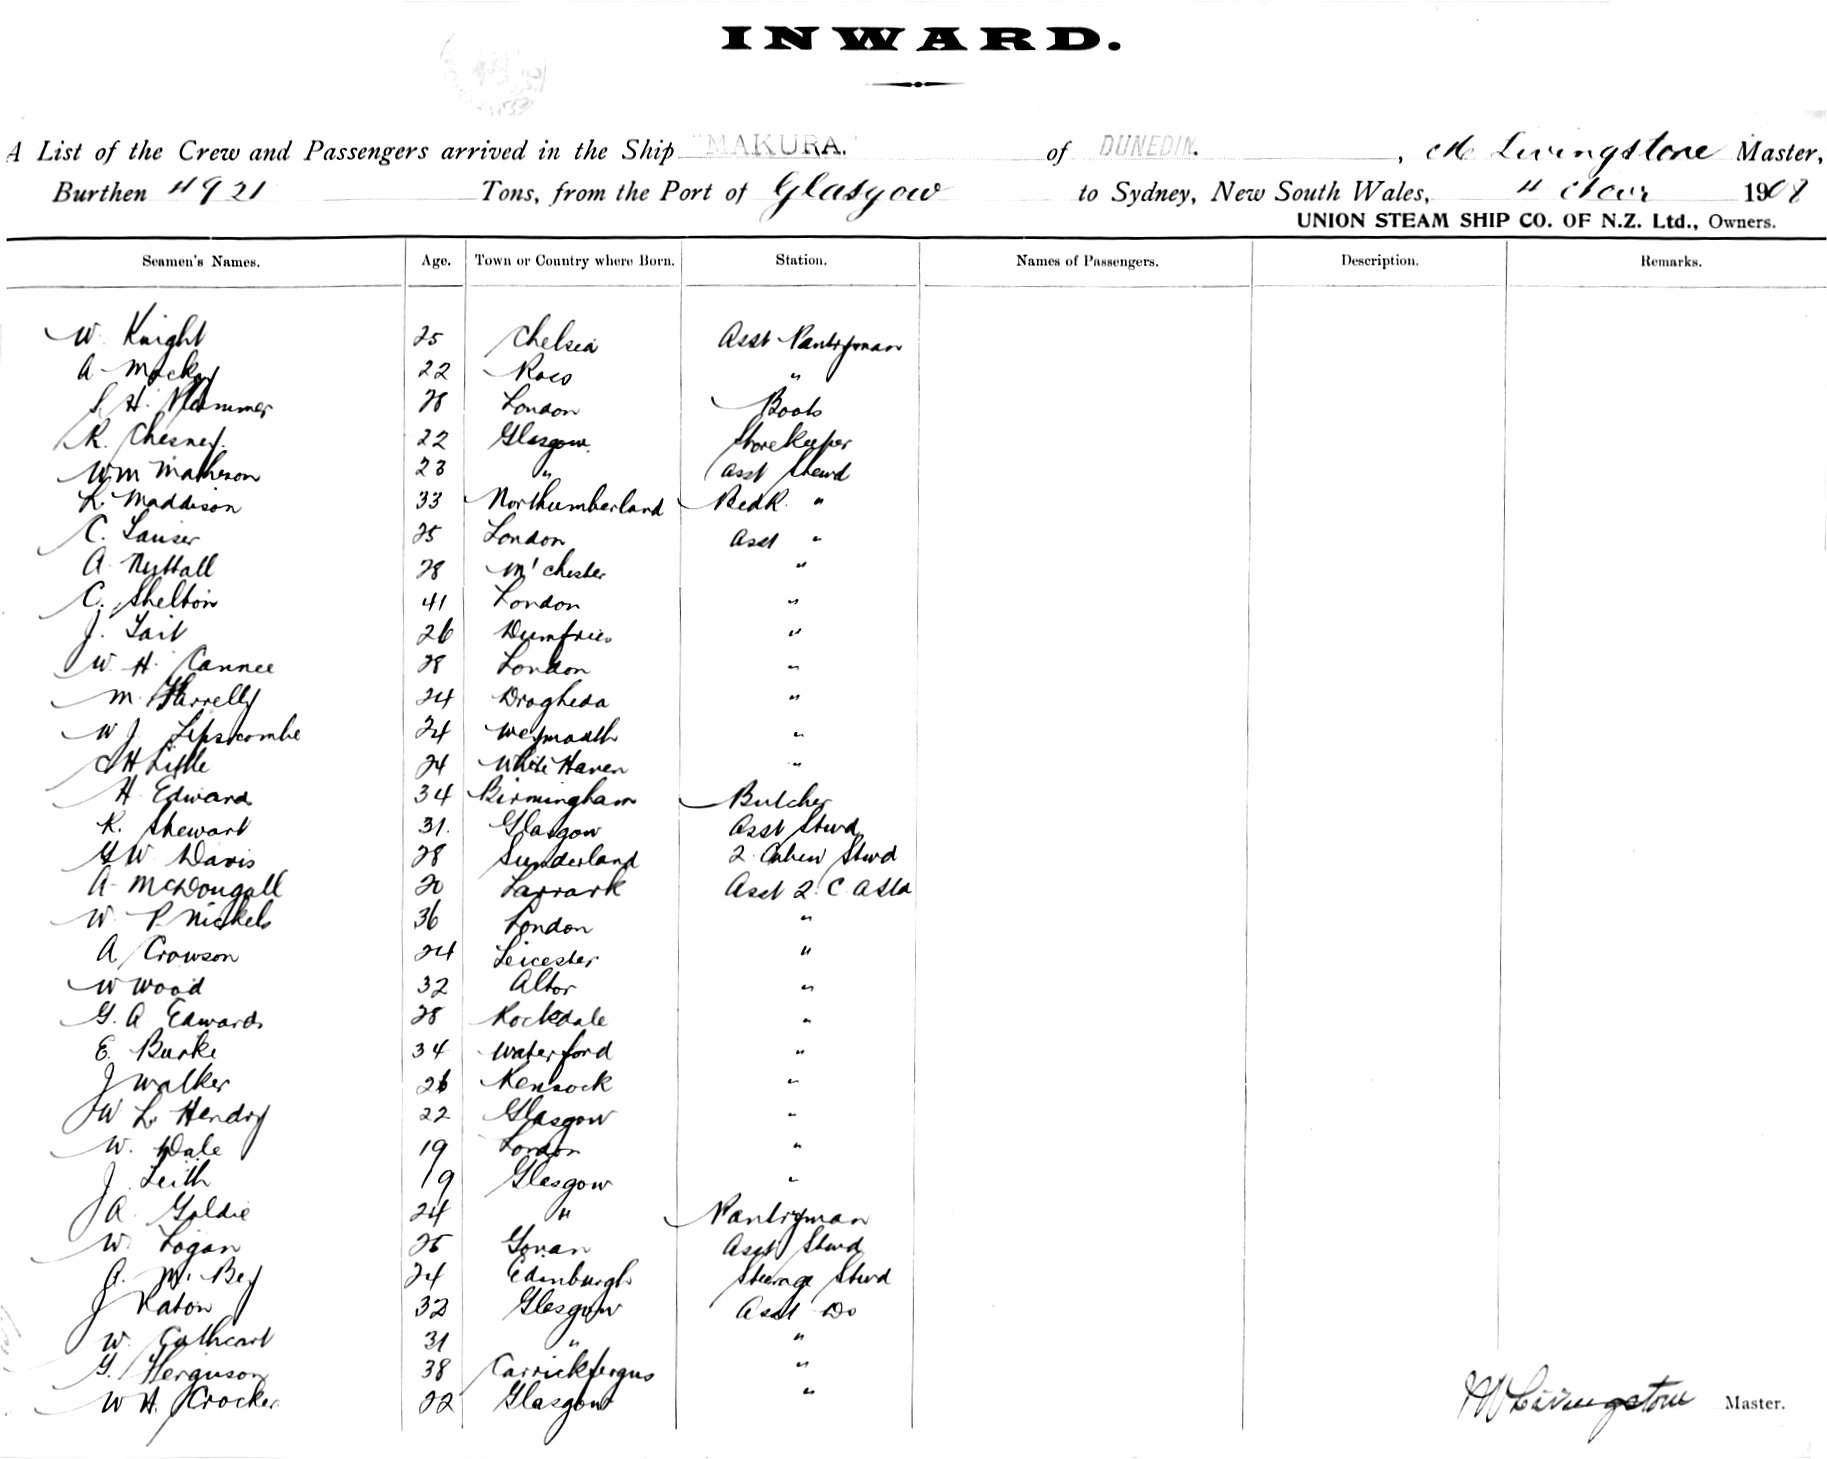 INWARD.
A List of the Crew and Passengers arrived in the Ship "MAKURA." of DUNEDIN. , Livingstone Master,
Burthen 4921 Tons, from the Port of Glasgow to Sydney, New South Wales, 1908
UNION STEAM SHIP CO. OF N.Z. Ltd., Owners.
Seamen's Names. Age. Town or Country where Born. Station. Names of Passengers. Description. Remarks.
W. Knight 25 Chelsea Asst Pantryman
A Mackay 22 Ross "
S. H. Plummer 28 London Boots
R. Chesney. 22 Glasgow. Storekeeper
Wm Matheson 23 " Asst Stewd
R. Maddison 33 Northumberland BedR. "
C. 25 London Asst "
A. Nuttall 28 M'chester "
C. Shelton 41 London "
J. Tait 26 Dumfries "
W. H. Cannee 28 London "
M. Farrelly 24 Drogheda "
W J. Lipscombe 24 Weymouth "
H Little 24 White Haven "
H. Edward 34 Birmingham Butcher
R. Stewart 31. Glasgow Asst Stwd
G W. Davis 28 Sunderland 2 Cabin Stwd
A. McDougall 20 Larrark Asst 2. C
W. P. Nickels 36 London "
A Crowson 24 Leicester "
W Wood 32 "
G. A Edwards 28 Rockdale "
E. Burke 34 Waterford "
J Walker 26 "
W L. Hendry 22 Glasgow "
W. Dale 19 London "
J. Leith 19 Glasgow "
A. Goldie 24 " Pantryman
W. Logan 25 Govan Asst Stwd
A. Mc Bey 24 Edinburgh Steerage Stwd
J Paton 32 Glasgow Asst Do
W. Cathcart 31 " "
G. Ferguson 38 Carrickfergus "
W H. Crocker 22 Glasgow "
Livingstone Master.